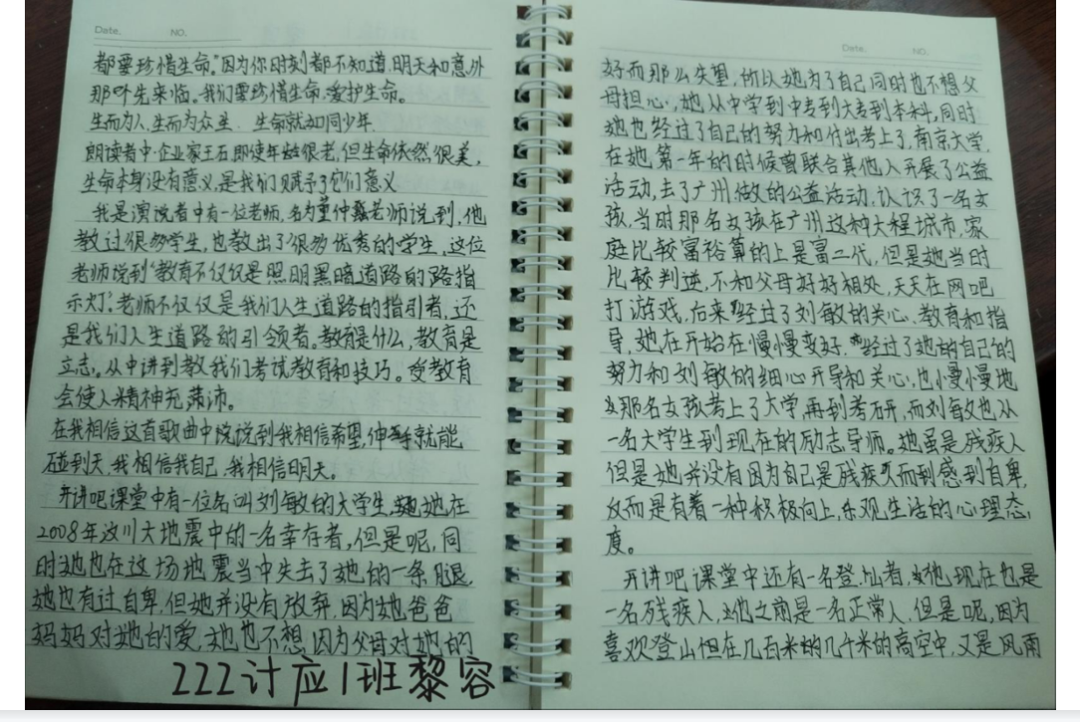 Date.    NO.
都要珍惜生命。"因为你时刻都不知道,明天和意外
那个先来临。我们要珍惜生命,爱护生命。
生而为人,生而为众生。生命就如同少年.
朗读者中企业家王石即使年龄很老,但生命依然,很美,
生命本身没有意义,是我们赋予了它们意义
我是演说者中有一位老师,名为董仲蠡老师说到,他
教过很多学生,也教出了很多优秀的学生,这位
老师说到"教育不仅仅是照明黑暗道路的路指
示灯。老师不仅仅是我们人生道路的指引者,还
是我们人生道路的引领者。教育是什么,教育是
立志。从中讲到教我们考试教育和技巧。受教育
会使人精神充沛。
在我相信这首歌曲中说到我相信希望,伸手就能
碰到天,我相信我自己,我相信明天。
开讲吧课堂中有一位名叫刘敏的大学生,她在
2008年汶川大地震中的一名幸存者,但是呢,同
时她也在这场地震当中失去了她的一条腿,
她也有过自卑,但她并没有放弃,因为她爸爸
妈妈对她的爱,她也不想因为父母对她的
222计应1班黎容
Date.    NO.
好而那么失望,所以她为了自己同时也不想父
母担心,她从中学到中专到大专到本科,同时
她也经过了自己的努力和付出考上了,南京大学,
在她第一年的时候曾联合其他人开展了公益
活动,去了广州做的公益活动,认识了一名女
孩,当时那名女孩在广州这种大程城市,家
庭比较富裕算的上是富二代,但是她当时
比较判逆,不和父母好好相处,天天在网吧
打游戏,后来经过了刘敏的关心、教育和指
导,她在开始在慢慢变好,经过了她的自己的
努力和刘敏的细心开导和关心,也慢慢地
那名女孩考上了大学,再到考研,而刘敏也从
一名大学生到现在的励志导师。她虽是残疾人
但是她并没有因为自己是残疾人而到感到自卑,
反而是有着一种积极向上,乐观生活的心理态
度。
开讲吧课堂中还有一名登山者,他现在也是
一名残疾人,他之前是一名正常人,但是呢,因为
喜欢登山但在几百米的几千米的高空中,又是风雨